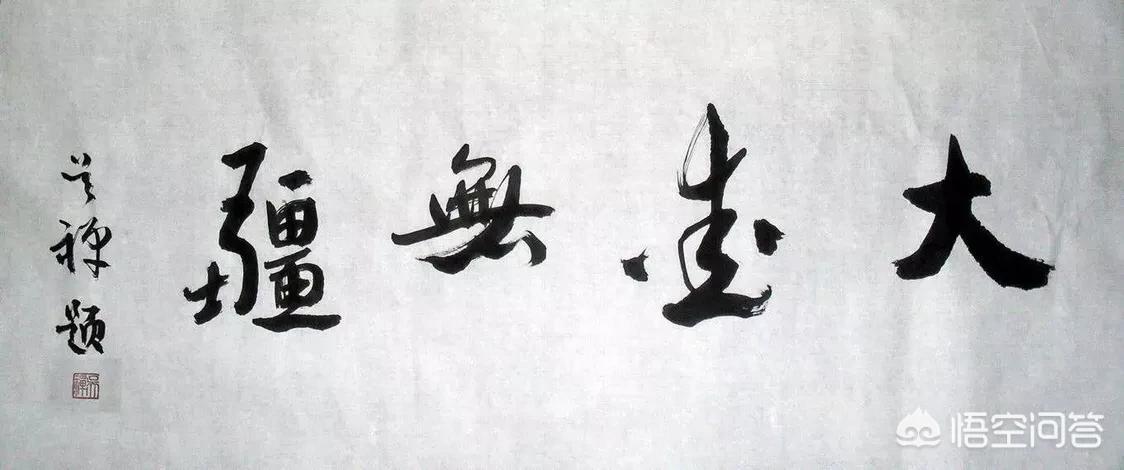 大愛無疆
吴禅题
悟空问答